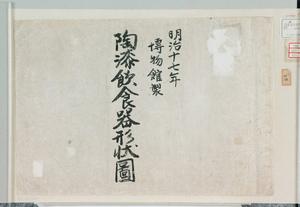 明治十七年
博物館製
陶漆飲食器形状圖